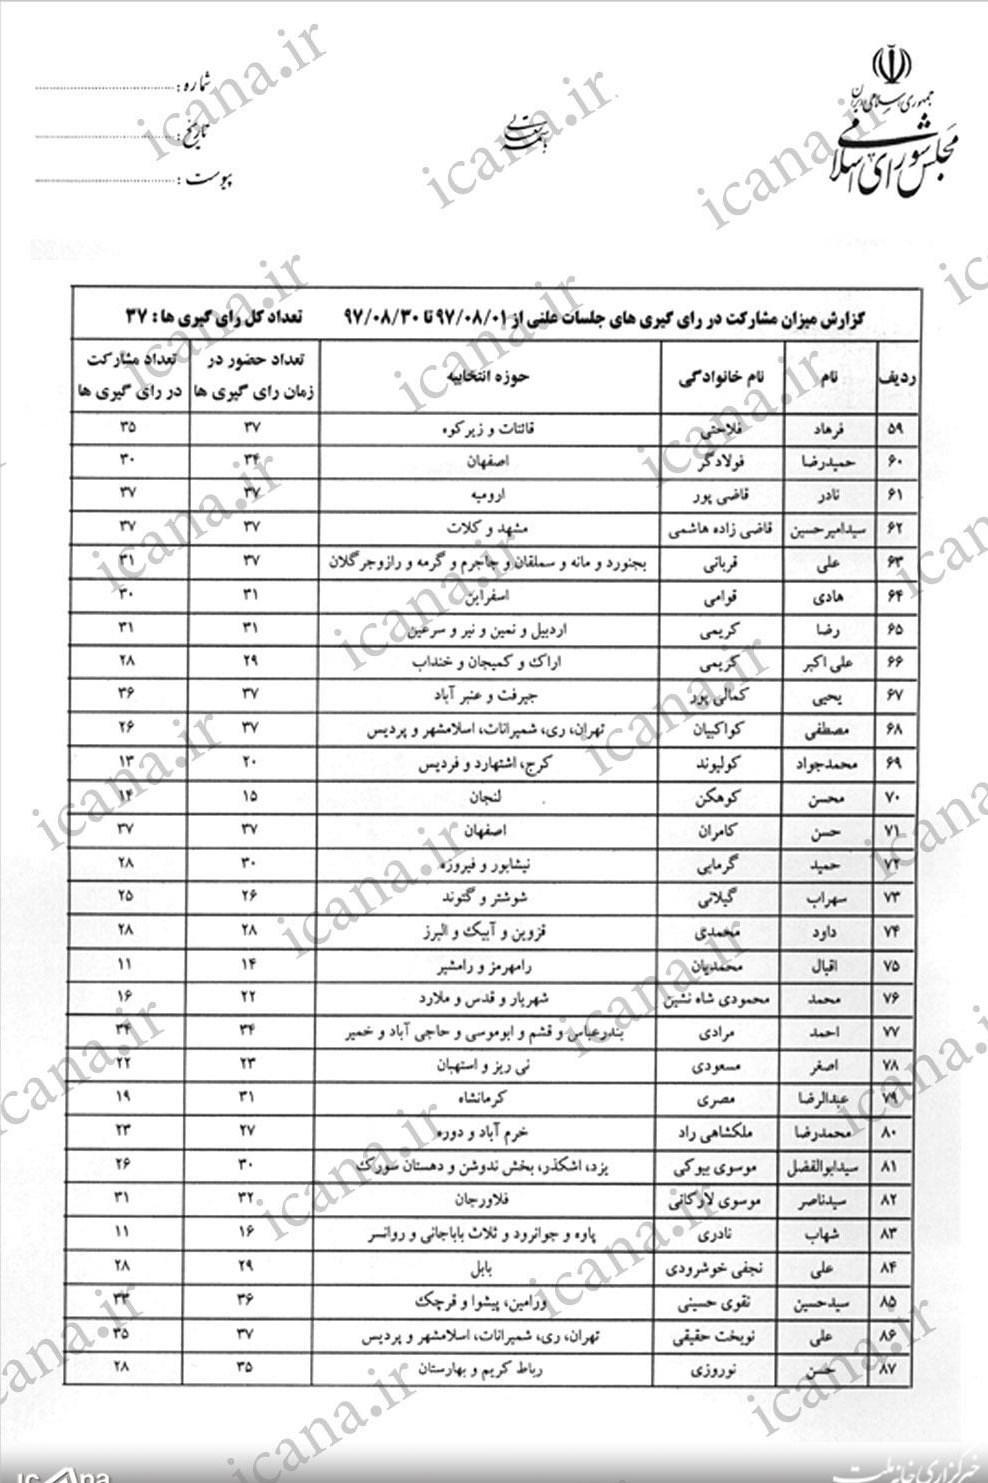 جمهوری اسلامی ایران
مجلس شورای اسلامی
باسمه تعالی
شماره :
تاریخ :
پیوست :
گزارش میزان مشارکت در رای گیری های جلسات علنی از ۹۷/۰۸/۰۱ تا ۹۷/۰۸/۳۰ تعداد کل رای گیری ها : ۳۷
ردیف نام نام خانوادگی حوزه انتخابیه تعداد حضور در زمان رای گیری ها تعداد مشارکت در رای گیری ها
۵۹ فرهاد فلاحتی قائنات و زیرکوه ۳۷ ۳۵
۶۰ حمیدرضا فولادگر اصفهان ۳۴ ۳۰
۶۱ نادر قاضی پور ارومیه ۳۷ ۳۷
۶۲ سیدامیرحسین قاضی زاده هاشمی مشهد و کلات ۳۷ ۳۷
۶۳ علی قربانی بجنورد و مانه و سملقان و جاجرم و گرمه و رازوجرگلان ۳۷ ۳۱
۶۴ هادی قوامی اسفراین ۳۱ ۳۰
۶۵ رضا کریمی اردبیل و نمین و نیر و سرعین ۳۱ ۳۱
۶۶ علی اکبر کریمی اراک و کمیجان و خنداب ۲۹ ۲۸
۶۷ یحیی کمالی پور جیرفت و عنبر آباد ۳۷ ۳۶
۶۸ مصطفی کواکبیان تهران، ری، شمیرانات، اسلامشهر و پردیس ۳۷ ۲۶
۶۹ محمدجواد کولیوند کرج، اشتهارد و فردیس ۲۰ ۱۳
۷۰ محسن کوهکن لنجان ۱۵ ۱۴
۷۱ حسن کامران اصفهان ۳۷ ۳۷
۷۲ حمید گرمابی نیشابور و فیروزه ۳۰ ۲۸
۷۳ سهراب گیلانی شوشتر و گتوند ۲۶ ۲۵
۷۴ داود محمدی قزوین و آبیک و البرز ۲۸ ۲۸
۷۵ اقبال محمدیان رامهرمز و رامشیر ۱۴ ۱۱
۷۶ محمد محمودی شاه نشین شهریار و قدس و ملارد ۲۲ ۱۶
۷۷ احمد مرادی بندرعباس و قشم و ابوموسی و حاجی آباد و خمیر ۳۴ ۳۴
۷۸ اصغر مسعودی نی ریز و استهبان ۲۳ ۲۲
۷۹ عبدالرضا مصری کرمانشاه ۳۱ ۱۹
۸۰ محمدرضا ملکشاهی راد خرم آباد و دوره ۲۷ ۲۳
۸۱ سیدابوالفضل موسوی بیوکی یزد، اشکذر، بخش ندوشن و دهستان سورک ۳۰ ۲۶
۸۲ سیدناصر موسوی لارگانی فلاورجان ۳۲ ۳۱
۸۳ شهاب نادری پاوه و جوانرود و ثلاث باباجانی و روانسر ۱۶ ۱۱
۸۴ علی نجفی خوشرودی بابل ۲۹ ۲۸
۸۵ سیدحسین نقوی حسینی ورامین، پیشوا و قرچک ۳۶ ۳۳
۸۶ علی نوبخت حقیقی تهران، ری، شمیرانات، اسلامشهر و پردیس ۳۷ ۳۵
۸۷ حسن نوروزی رباط کریم و بهارستان ۳۵ ۲۸
icana.ir
خبرگزاری خانه ملت